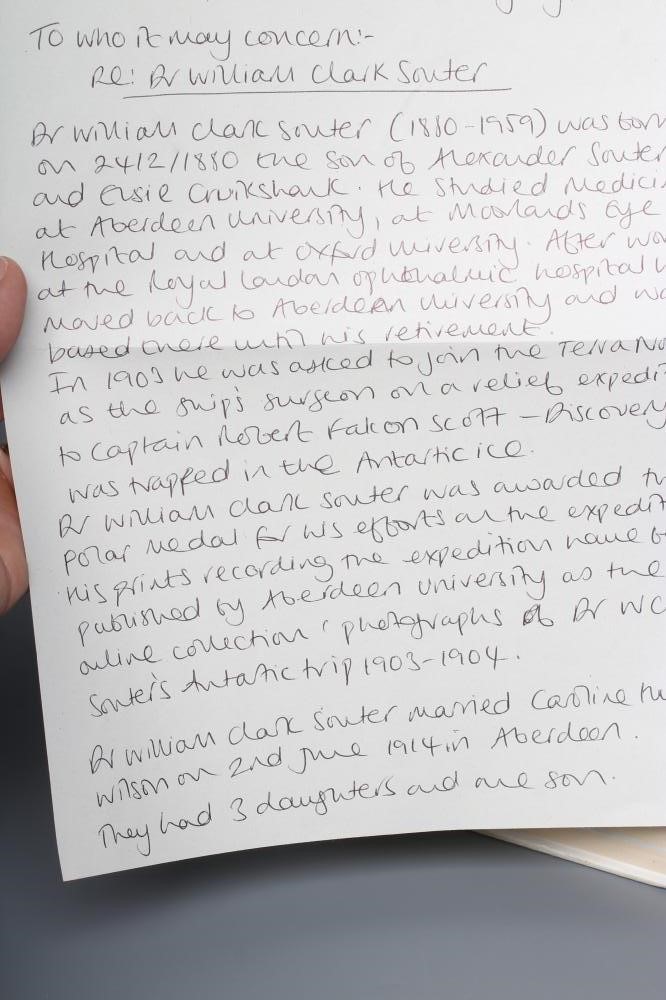 To who it may concern:-
Re: Dr William Clark Souter
Dr William Clark Souter (1880-1959) was born
on 24/2/1880 the son of Alexander Souter
and Elsie Cruikshank. He studied Medici
at Aberdeen University, at Moorlands Eye
Hospital and at Oxford University. After wo
at the Royal London Ophthalmic Hospital
moved back to Aberdeen University and wa
based there until his retirement.
In 1903 he was asked to join the Terra No
as the ship's surgeon on a relief expedit
to Captain Robert Falcon Scott – Discovery
was trapped in the Antartic ice.
Dr William Clark Souter was awarded th
Polar Medal for his efforts on the expedit
His prints recording the expedition have be
published by Aberdeen University as the
online collection 'photographs of Dr WC
Souter's Antartic trip 1903-1904.
Dr William Clark Souter married Caroline
Wilson on 2nd June 1914 in Aberdeen.
They had 3 daughters and one son.